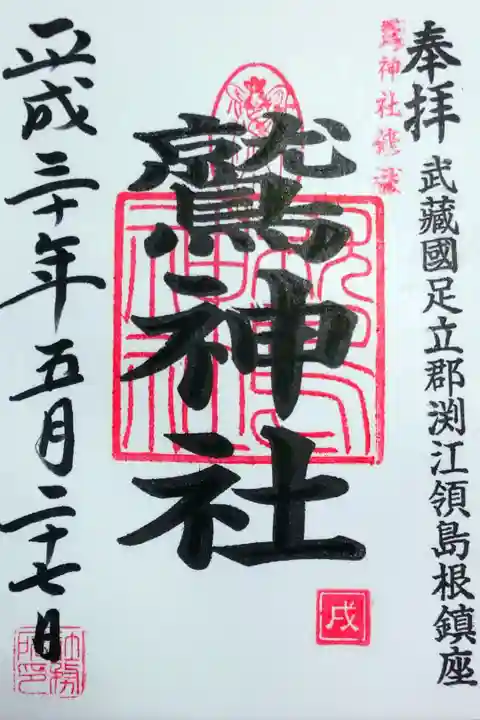 奉拝
武藏國足立郡渕江領島根鎮座
鷲神社修祓
鷲神社
戌
平成三十年五月二十七日
社務所印